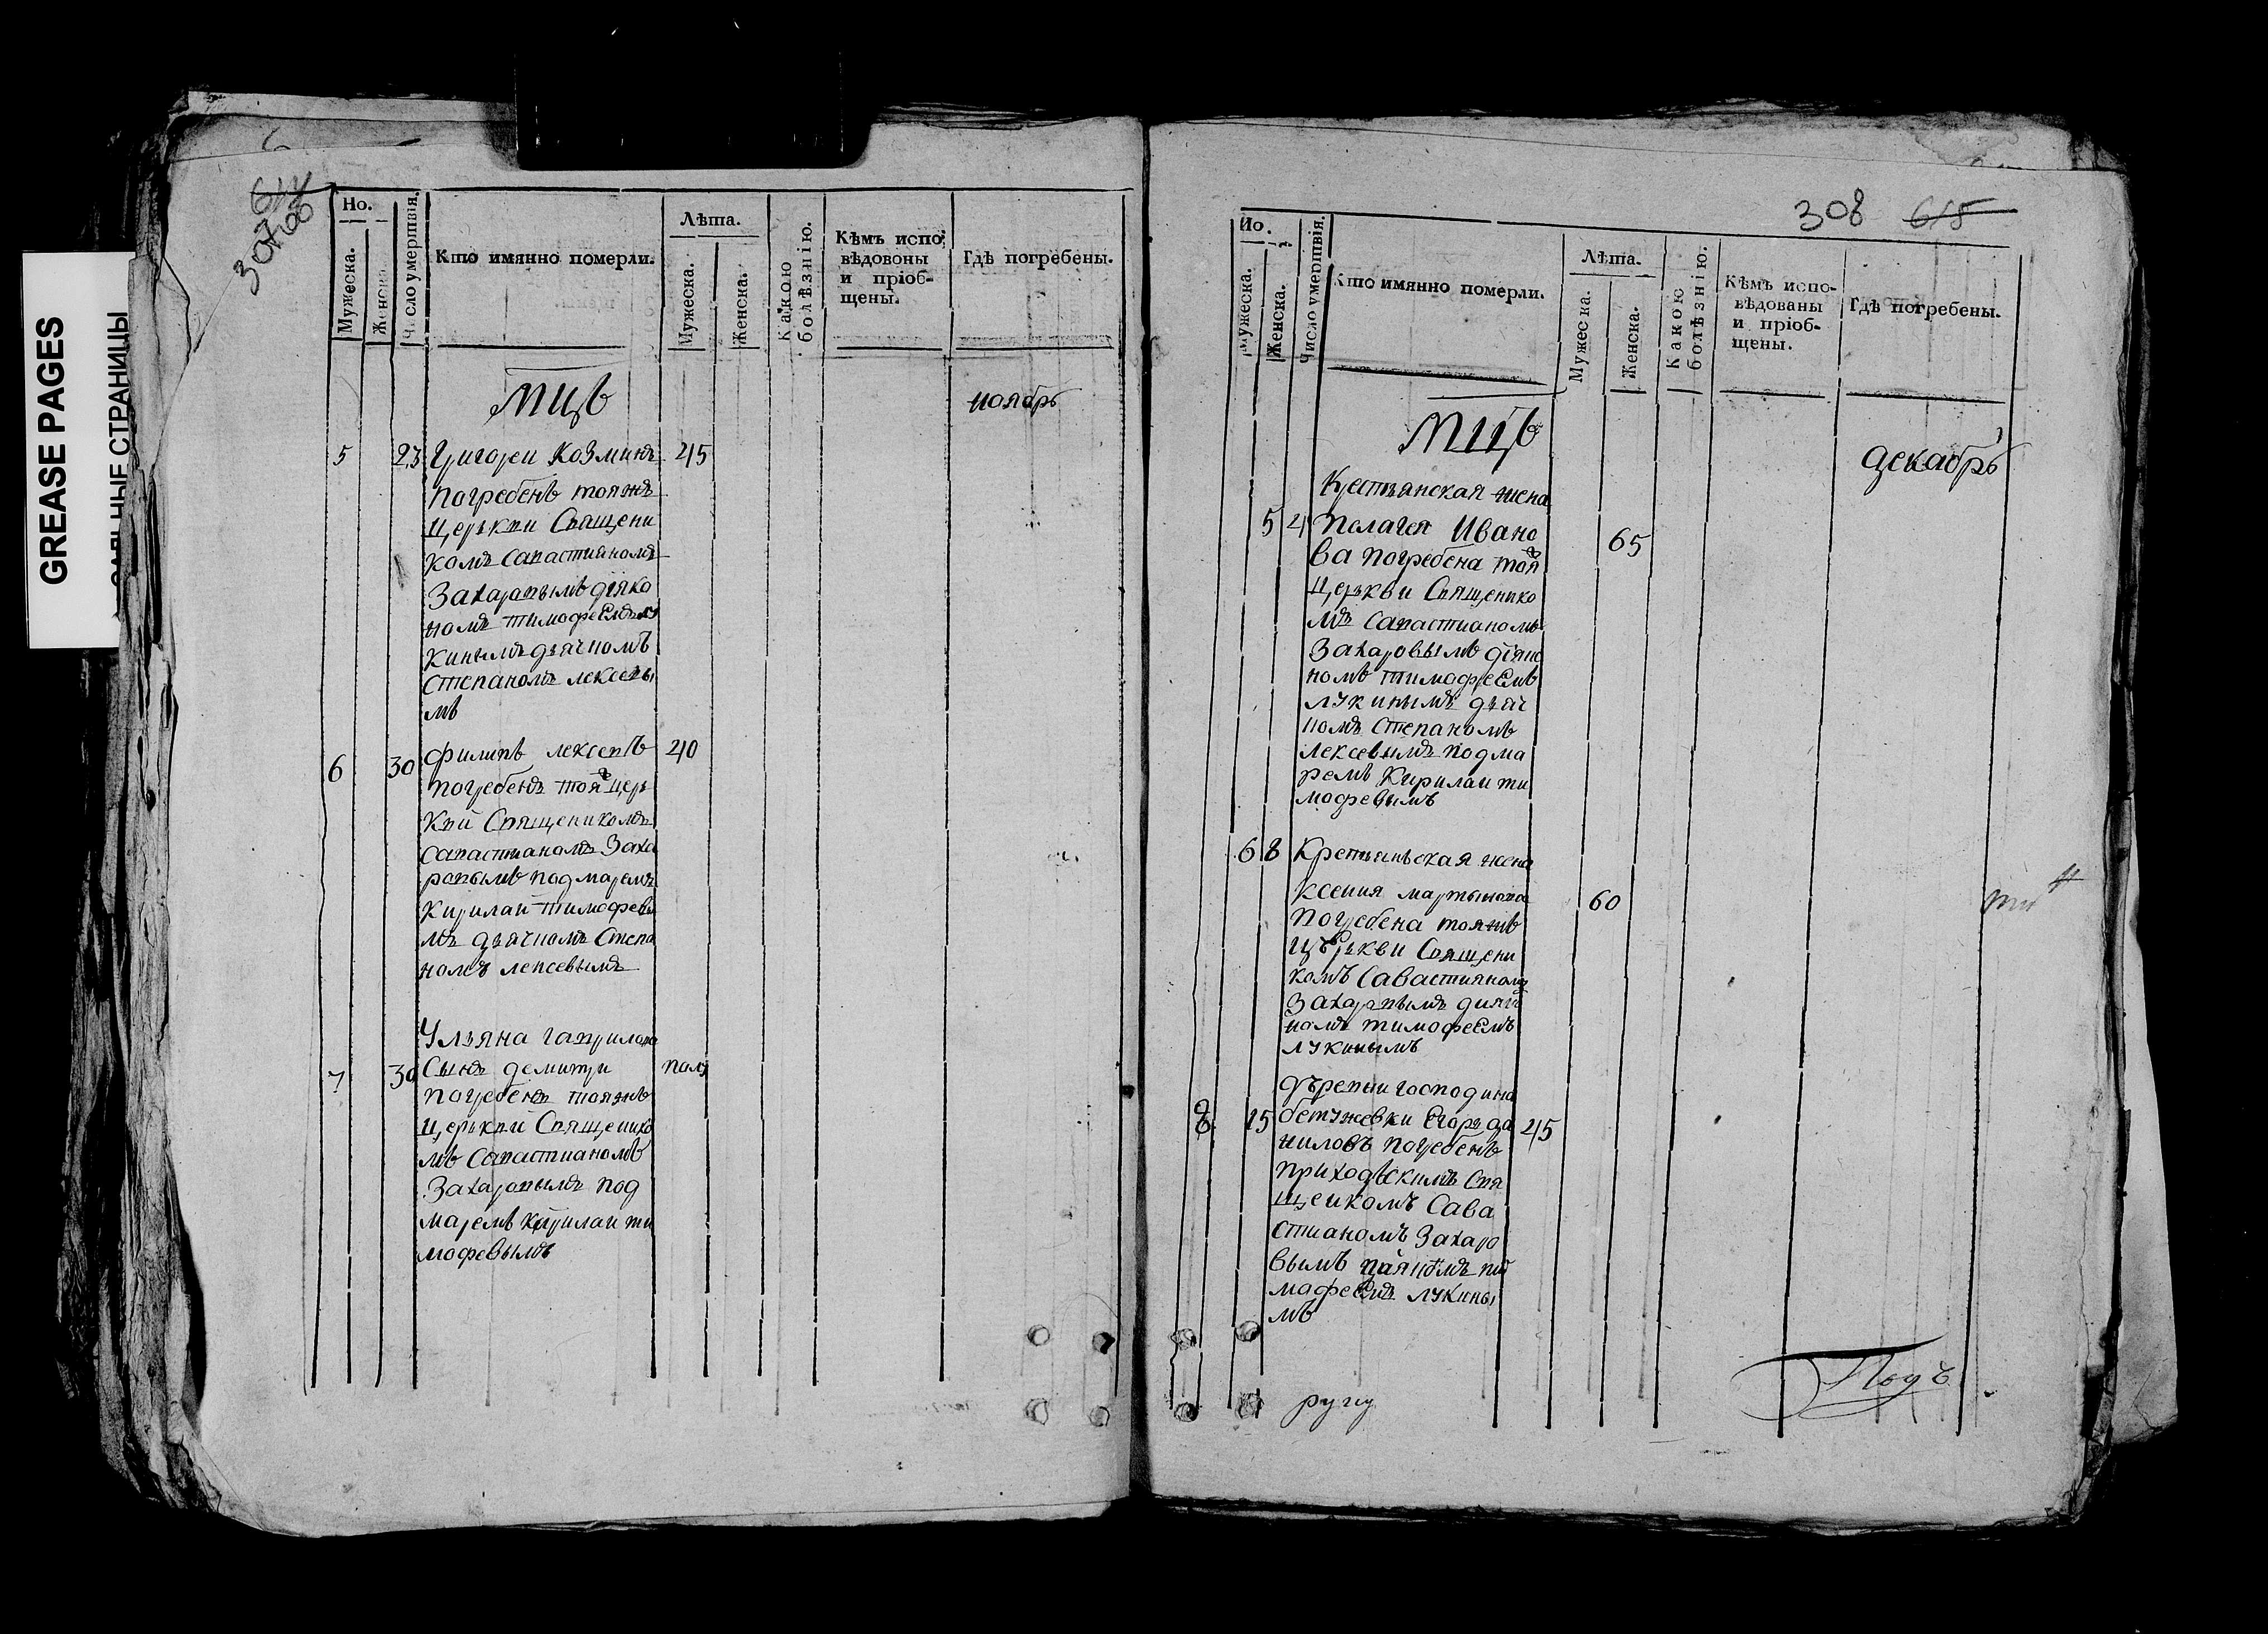 GREASE PAGES
САЛЬНЫЕ СТРАНИЦЫ
614
307об
Но.
Мужеска.
Женска.
Число умертвія.
Кто имянно померли.
Лѣта.
Мужеска.
Женска.
Какою болѣзнію.
Кѣмъ испо-
вѣдовоны
и пріоб-
щены.
Гдѣ погребены.
мцъ
ноябрь
5 23 Григореи козминъ 45
погребенъ тояжъ
церькви Священи
комъ савастианомъ
Захаровымъ дияко
номъ тимофеемъ лу
кинымъ дьячкомъ
степаномъ лексевы
мъ
6 30 филипъ лексевъ 40
погребенъ тояж цер
кви Священикомъ
савастианомъ Заха
ровымъ подмаремъ
Кирилаи тимофевы
мъ дьячкомъ Степа
номъ лексевымъ
Ульяна гаврилова
7 30 Сынъ демитри полу
погребенъ тояжъ
церькви Священико
мъ Савастианомъ
Захаровымъ под
маремъ кирилаи ти
мофевымъ
308 615
Но.
Мужеска.
Женска.
Число умертвія.
Кто имянно померли.
Лѣта.
Мужеска.
Женска.
Какою болѣзнію.
Кѣмъ испо-
вѣдованы
и пріоб-
щены.
Гдѣ погребены.
мцъ
декабрь
Крестьянская жена
5 4 Пелагея Ивано 65
ва погребена тояж
церькви Священико
мъ Савастианомъ
Захаровымъ дияко
номъ тимафеемъ
лукинымъ дьяч
комъ Степаномъ
лексевымъ подма
ремъ Кирилаи ти
мофевымъ
6 8 Кретьяньская жена
Ксения мартынова 60
погребена тояжъ
църькви Священи
комъ Савастияномъ
Захаровымъ дияко
номъ тимофеемъ
лукинымъ
дърѣвни господина
8 15 бетужевки Егоръ да 45
ниловъ погребенъ
приходъскимъ Свя
щеикомъ Сава
стианомъ Захаро
вымъ дияконмъ ти
мафеемъ лукины
мъ
Подъ
руку